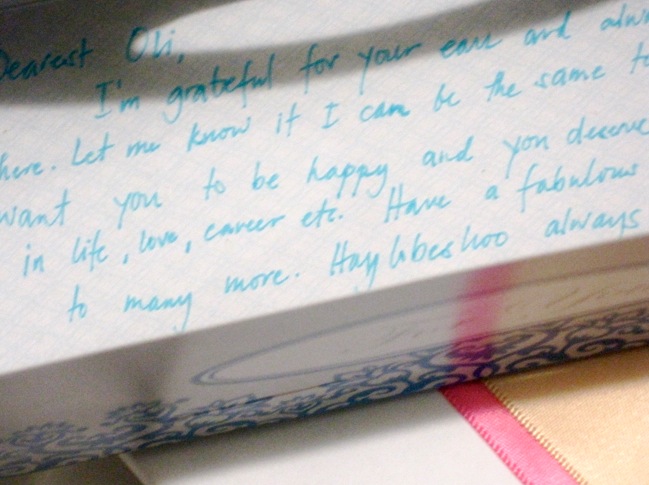 Dearest Oli,
I'm grateful for your ears and alwa
here. Let me know if I can be the same to
want you to be happy and you deserve
in life, love, career etc. Have a fabulous
to many more. always